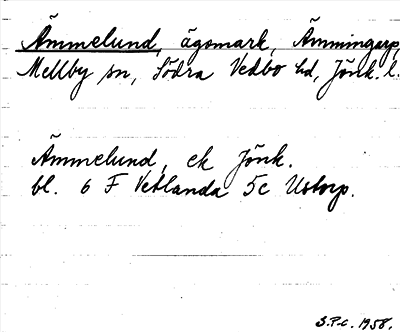 Ämmelund, ägomark, Ämmingarp,
Mellby sn, Södra Vedbo hd, Jönk. l.
Ämmelund, ek Jönk.
bl. 6 F Vetlanda 5c Ustorp.
S.P-c. 1958.